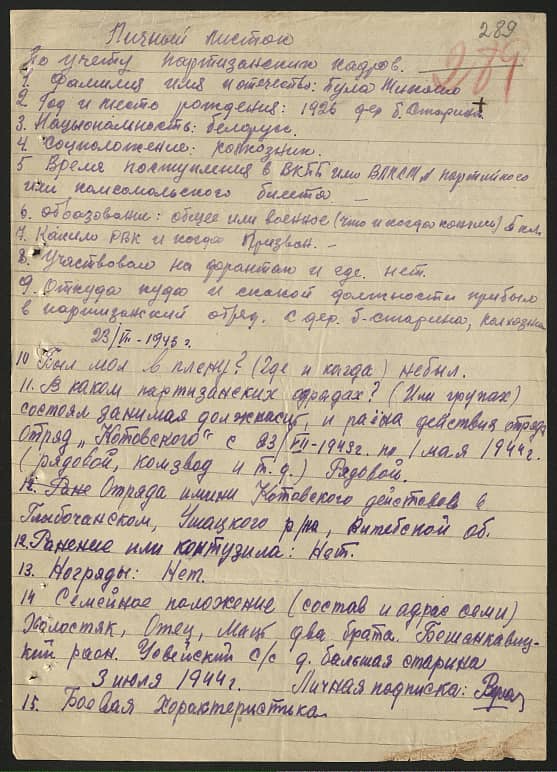 289
Личный листок
По учету партизанских кадров.
289
1 Фамилия имя и отечество: Була Михаило
2 Год и место рождения: 1926 дер б. Старина
3. Национомность: белорус.
4. Соцположение: колхозник.
5 Время поступления в ВКПБ или ВЛКСМ партийного
или комсомольского билета —
6. Образование: общее или военное (что и когда кончил) 5 кл.
7. Каким РВК и когда призван. —
8. Участвовал на фронтах и где. нет.
9. Откуда куда и с какой должности прибыл
в партизанский отряд. С дер. б-старина, колхозник
23/VII-1943 г.
10 Был мол в плену? (Где и когда) небыл.
11. В каком партизанских отрядах? (Или групах)
состоял занимая должность, и раёна действия отряда
Отряд „Котовского" с 23/VII-1943г. по 1 мая 1944г.
(рядовой, комзвод и т.д.) Рядовой.
12. Отряда имини Котовского действовов в
Глыбочанском, Ушацкого р/на, Витебской об.
12. Ранение или контузила: Нет.
13. Нограды: Нет.
14 Семейное положение (состав и адрес семи)
Холостяк, Отец, Мать, два брата. Бешанкавиц-
кий раон. Увейский с/с д. балшая старина
3 июля 1944г. Личная подписка:
15. Боевая Характеристика